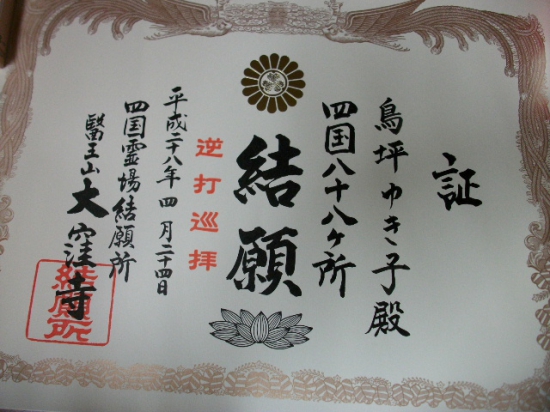 証
鳥坪ゆき子殿
四国八十八ヶ所
結願
逆打巡拝
平成二十八年四月二十四日
四国霊場結願所
醫王山大窪寺
結願所